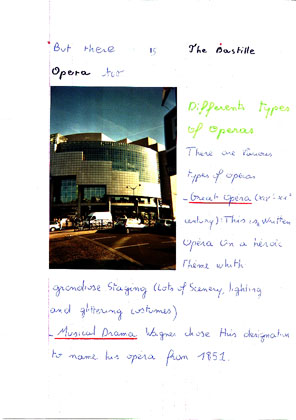 But there is The Bastille
Opera too
Different types
of Operas
There are various
types of operas
- Great Opera (XIXe-XXe
century): This is written
Opera on a heroic
theme with
grandiose staging (lots of scenery, lighting
and glittering costumes)
- Musical Drama. Wagner chose this designation
to name his opera from 1851.